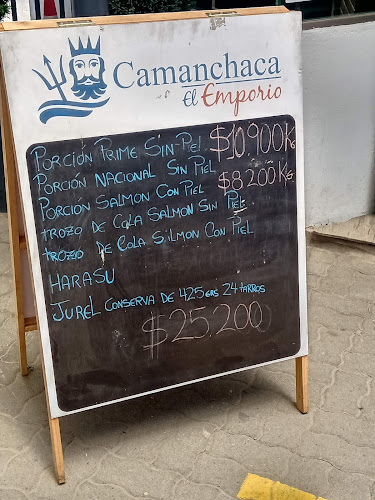 Camanchaca
El Emporio
PORCIÓN PRIME SIN-PIEL $10.900 KG
PORCIÓN NACIONAL SIN PIEL
PORCIÓN SALMON CON PIEL $8.200 KG
TROZO DE COLA SALMON SIN PIEL
TROZO DE COLA SALMON CON PIEL
HARASU
JUREL CONSERVA DE 425 GRS 24 TARROS
$25.200